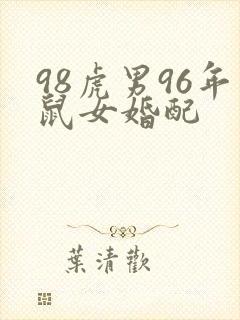 98虎男96年
鼠女婚配
葉清歡